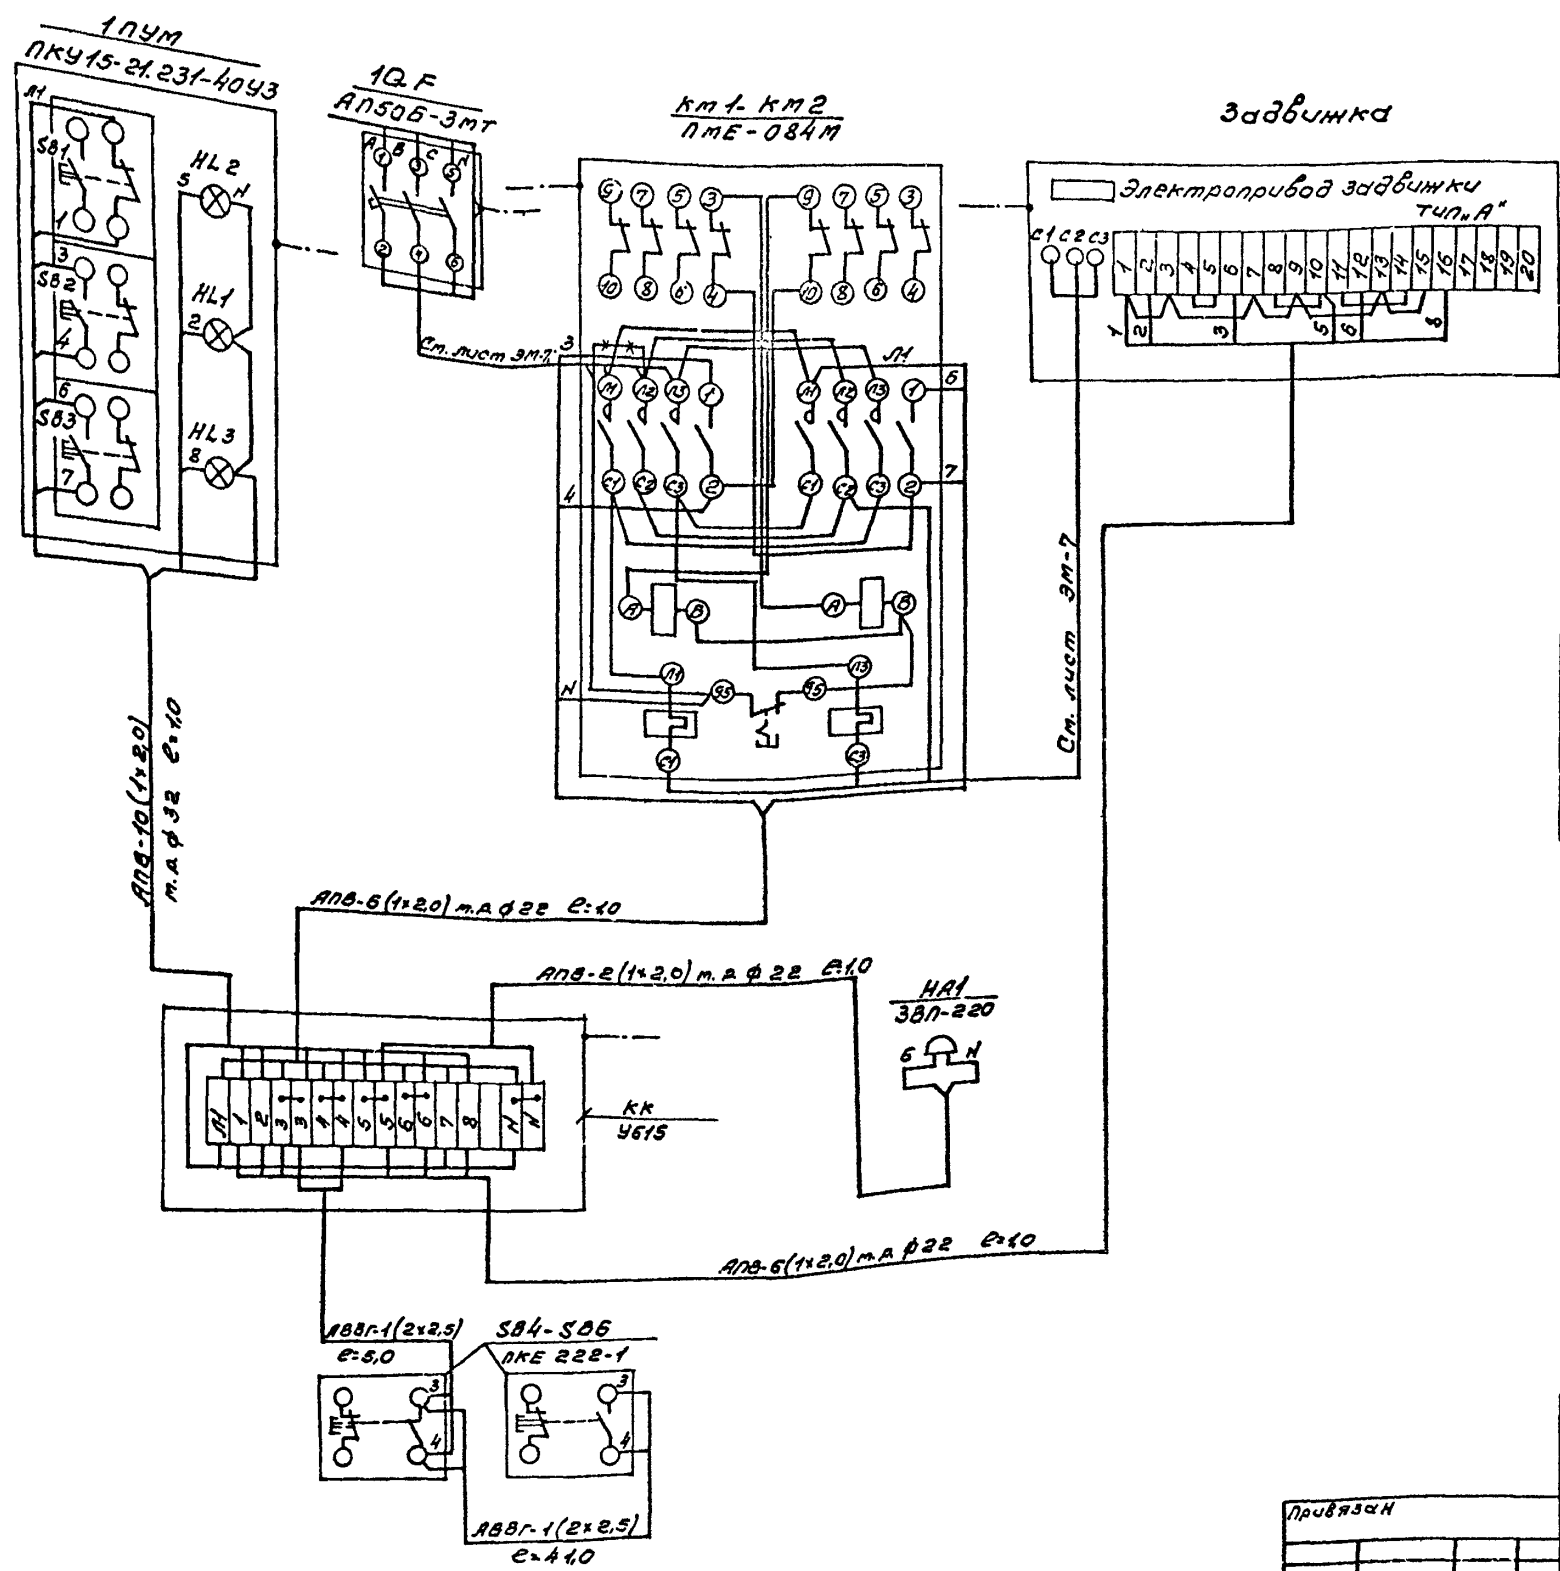 1ПУМ
ПКУ15-21.231-40У3
Л1
SB1
1
3
SB2
4
6
SB3
7
HL2
5 N
HL1
2
HL3
8
1QF
АП50Б-3МТ
А В С N
1 3 5
2 4 6
См. лист ЭМ-7;
км1-км2
ПМЕ-084М
9 7 5 3 9 7 5 3
10 8 6 4 10 8 6 4
3 Л1
Л1 Л2 Л3 1 Л1 Л2 Л3 1 6
С1 С2 С3 2 С1 С2 С3 2 7
4
А В А В
Л1 Л3
N 95 95
С1 С3
Задвижка
Электропривод задвижки
тип „А"
С1 С2 С3
1 2 3 4 5 6 7 8 9 10 11 12 13 14 15 16 17 18 19 20
1 2 3 5 6 8
См. лист ЭМ-7
АПВ-10(1×2,0)
т.р ф32 ℓ=1,0
АПВ-6(1×2,0) т.р ф22 ℓ=1,0
АПВ-2(1×2,0) т.р ф22 ℓ=1,0
НА1
ЗВП-220
6 N
Л1 1 2 3 3 4 4 5 5 6 6 7 8 N N
КК
У615
АПВ-6(1×2,0) т.р ф22 ℓ=1,0
АВВГ-1(2×2,5)
ℓ=5,0
SB4-SB6
ПКЕ 222-1
3 3
4 4
АВВГ-1(2×2,5)
ℓ=41,0
Привязан